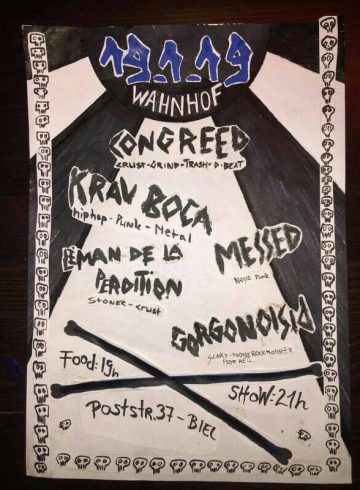 19.1.19
WAHNHOF
CONGREED
CRUST-GRIND-TRASH-D-BEAT
KRAV BOCA
hiphop-Punk-Metal
LÉMAN DE LA
PERDITION
STONER-CRUST
MESSED
NOISE PUNK
GORGONOISIA
SCARY-NOISEROCKMONSTER
FROM HELL
FOOD: 19h
SHOW: 21h
Poststr. 37 - BIEL